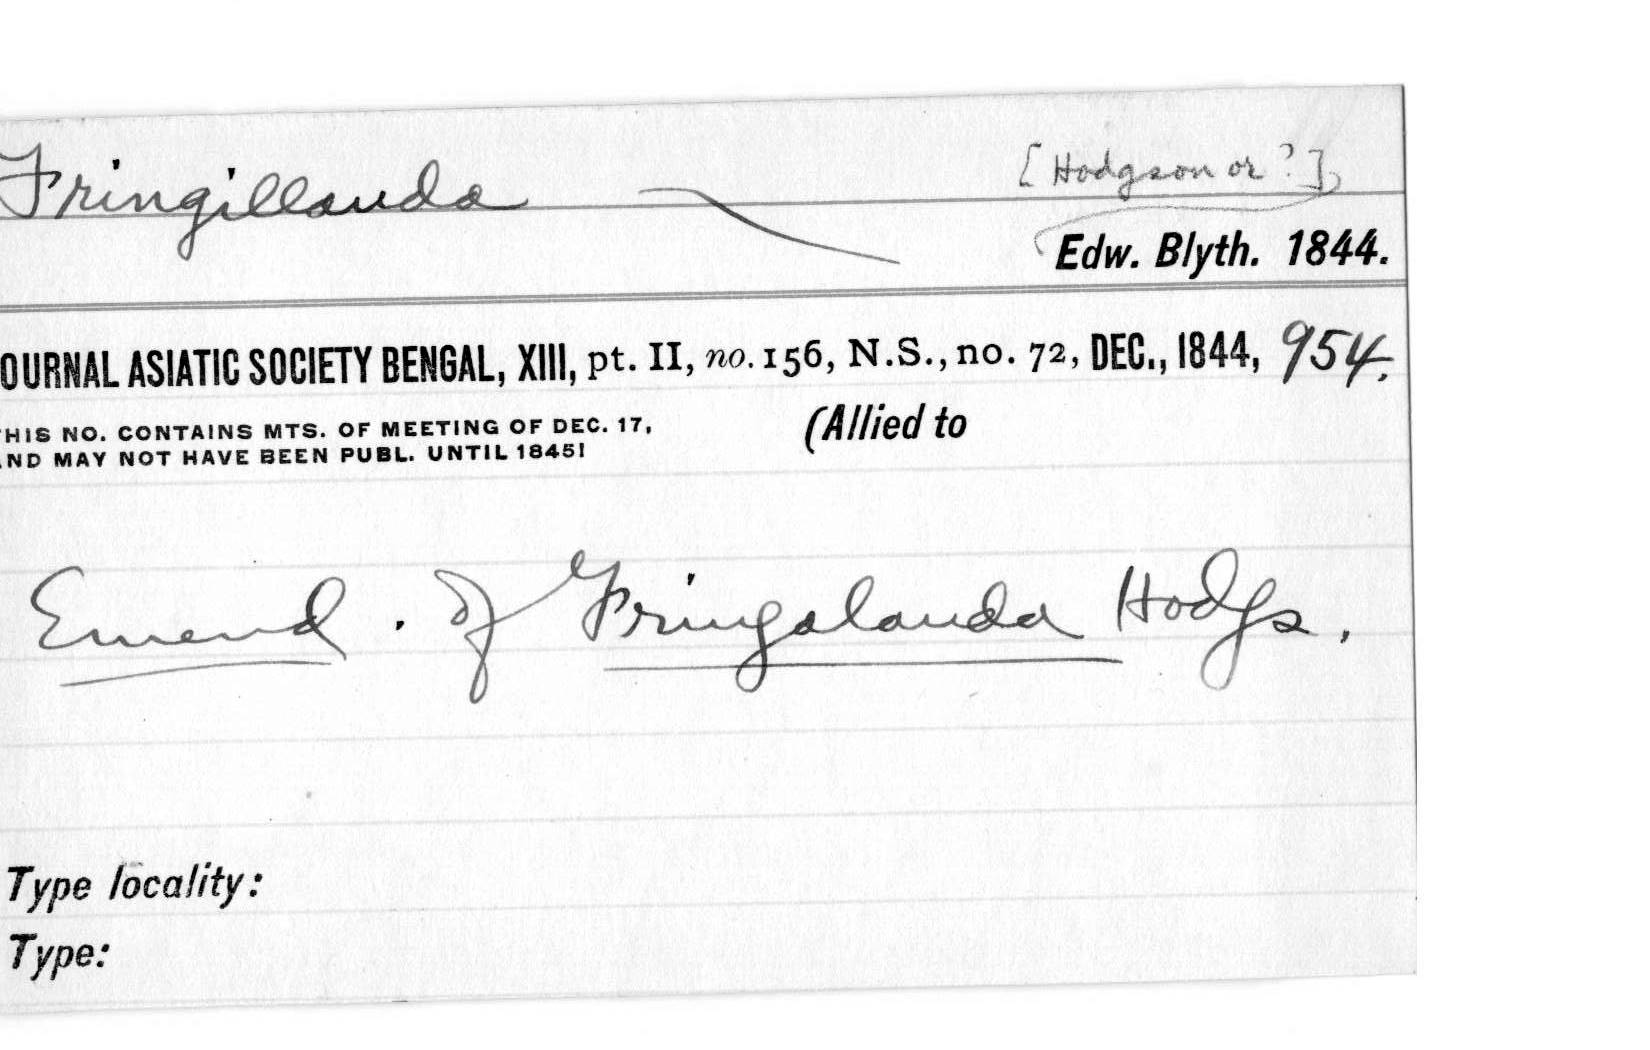 Fringillauda [Hodgson or ?]
Edw. Blyth. 1844.
OURNAL ASIATIC SOCIETY BENGAL, XIII, pt. II, no. 156, N.S., no. 72, DEC., 1844, 954.
HIS NO. CONTAINS MTS. OF MEETING OF DEC. 17, (Allied to
ND MAY NOT HAVE BEEN PUBL. UNTIL 1845!
Emend. of Fringalauda Hodgs.
Type locality:
Type: